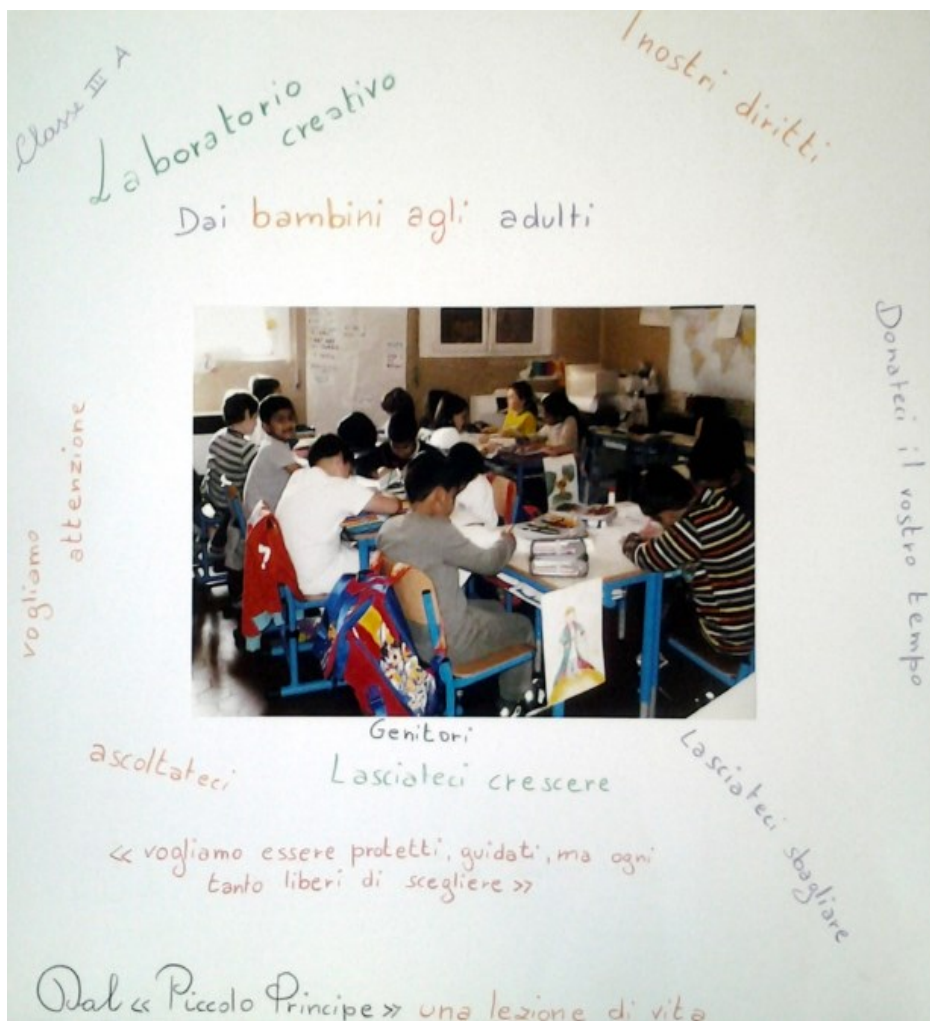 Classe III A
Laboratorio
creativo
I nostri diritti
Dai bambini agli adulti
Donateci il vostro tempo
vogliamo
attenzione
Genitori
ascoltateci
Lasciateci crescere
Lasciateci sbagliare
« vogliamo essere protetti, guidati, ma ogni
tanto liberi di scegliere »
Dal « Piccolo Principe » una lezione di vita